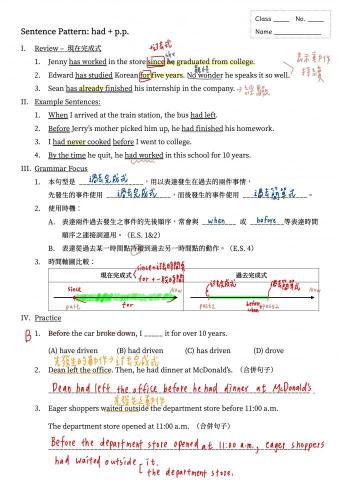 Class ____ No. ____
Name ____________
Sentence Pattern: had + p.p.
I. Review – 現在完成式
過去式
1. Jenny has worked in the store since he graduated from college.
she
2. Edward has studied Korean for five years. No wonder he speaks it so well.
難怪
表示動作
持續
3. Sean has already finished his internship in the company. → 經驗
II. Example Sentences:
1. When I arrived at the train station, the bus had left.
2. Before Jerry's mother picked him up, he had finished his homework.
3. I had never cooked before I went to college.
4. By the time he quit, he had worked in this school for 10 years.
III. Grammar Focus
1. 本句型是 過去完成式 ,用以表達發生在過去的兩件事情,
先發生的事件使用 過去完成式 ,而後發生的事件使用 過去簡單式 。
2. 使用時機:
A. 表達兩件過去發生之事件的先後順序,常會與 when 或 before 等表達時間
順序之連接詞連用。(E.S. 1&2)
B. 表達從過去某一時間點持續到過去另一時間點的動作。(E.S. 4)
3. 時間軸圖比較:
since + 過去時間點
for + 一段時間
現在完成式 過去完成式
since now
past for
過去完成式 過去簡單式 now
past2 before when past1
IV. Practice
B 1. Before the car broke down, I _____ it for over 10 years.
(A) have driven (B) had driven (C) has driven (D) drove
先發生的動作 → 過去完成式
2. Dean left the office. Then, he had dinner at McDonald's. (合併句子)
Dean had left the office before he had dinner at McDonald's.
先發生之動作
3. Eager shoppers waited outside the department store before 11:00 a.m.
The department store opened at 11:00 a.m. (合併句子)
Before the department store opened at 11:00 a.m., eager shoppers
had waited outside it.
the department store.